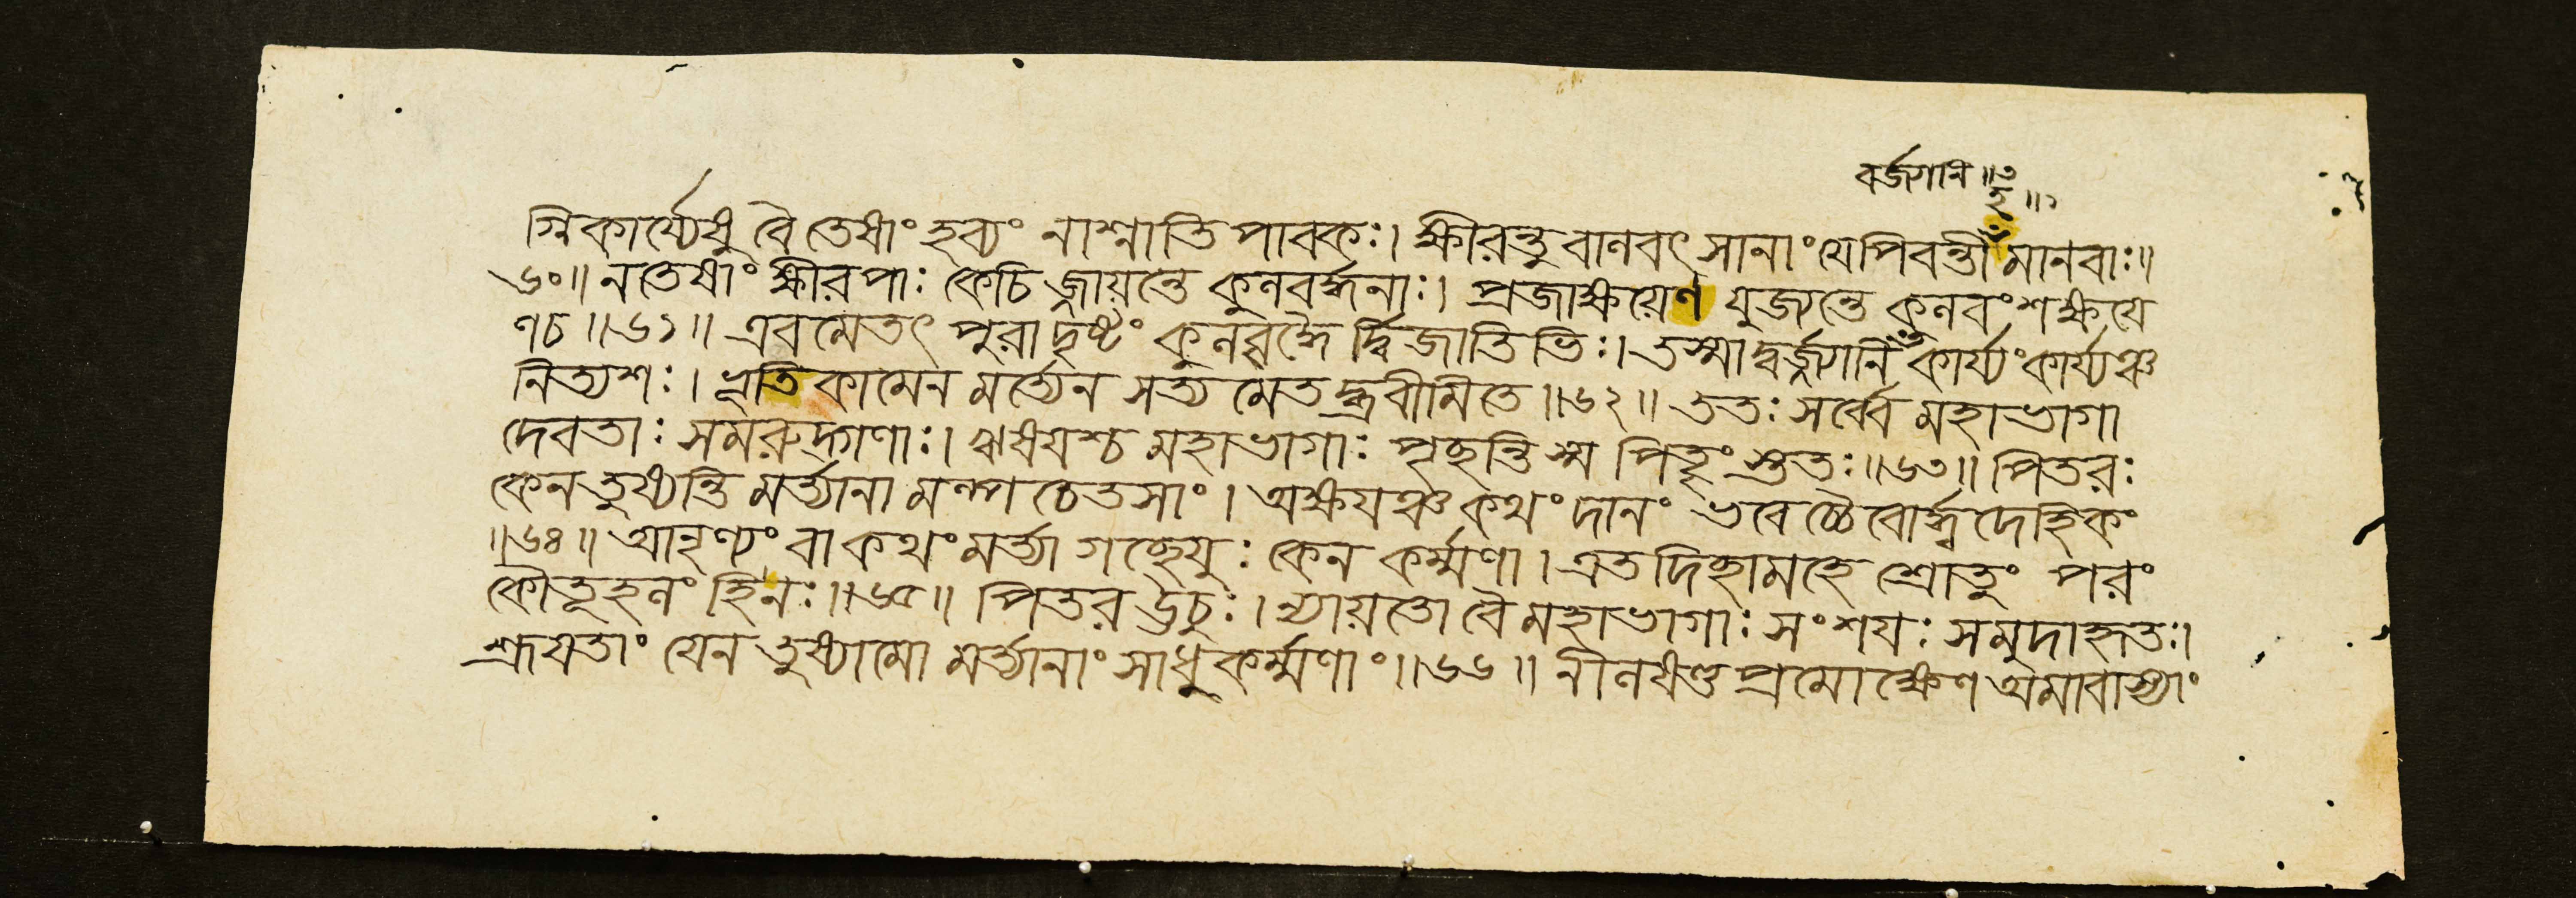 বর্জগানি ॥৩
হ॥১
গ্নিকার্য্যেষু বৈ তেষাং হব্যং নাশ্নাতি পাবকঃ। ক্ষীরন্তু বালবৎসানাং যে পিবন্তী মানবাঃ॥
৬০॥ ন তেষাং ক্ষীরপাঃ কেচি জ্জায়ন্তে কুলবর্দ্ধনাঃ। প্রজাক্ষয়েণ যুজ্যন্তে কুলবংশক্ষয়ে
ণ চ ॥৬১॥ এবমেতৎ পুরা দৃষ্টং কুলবৃদ্ধৈ র্দ্বিজাতিভিঃ। তস্মাদ্বর্জ্জগানি কার্য্যং কার্য্যঞ্চ
নিত্যশঃ। ভূতি কামেন মর্ত্যেন সত্য মেতদ্ব্রবীমি তে ॥৬২॥ ততঃ সর্ব্বে মহাভাগা
দেবতাঃ সমরুদ্গণাঃ। ঋষয়শ্চ মহাভাগাঃ পৃচ্ছন্তি স্ম পিতৄং স্ততঃ॥৬৩॥ পিতরঃ
কেন তুষ্যন্তি মর্ত্যানা মল্পচেতসাং। অক্ষয়ঞ্চ কথং দানং ভবেচ্চৈবোর্দ্ধ্বদেহিকং
॥৬৪॥ আনৃণ্যং বা কথং মর্ত্যা গচ্ছেযুঃ কেন কর্ম্মণা। এতদিচ্ছামহে শ্রোতুং পরং
কৌতূহলং হি নঃ॥৬৫॥ পিতর ঊচুঃ। ন্যায়তো বৈ মহাভাগাঃ সংশয়ঃ সমুদাহৃতঃ।
শ্রূয়তাং যেন তুষ্যামো মর্ত্যানাং সাধুকর্ম্মণাং॥৬৬॥ নীলষণ্ডপ্রমোক্ষেণ অমাবাস্যাং